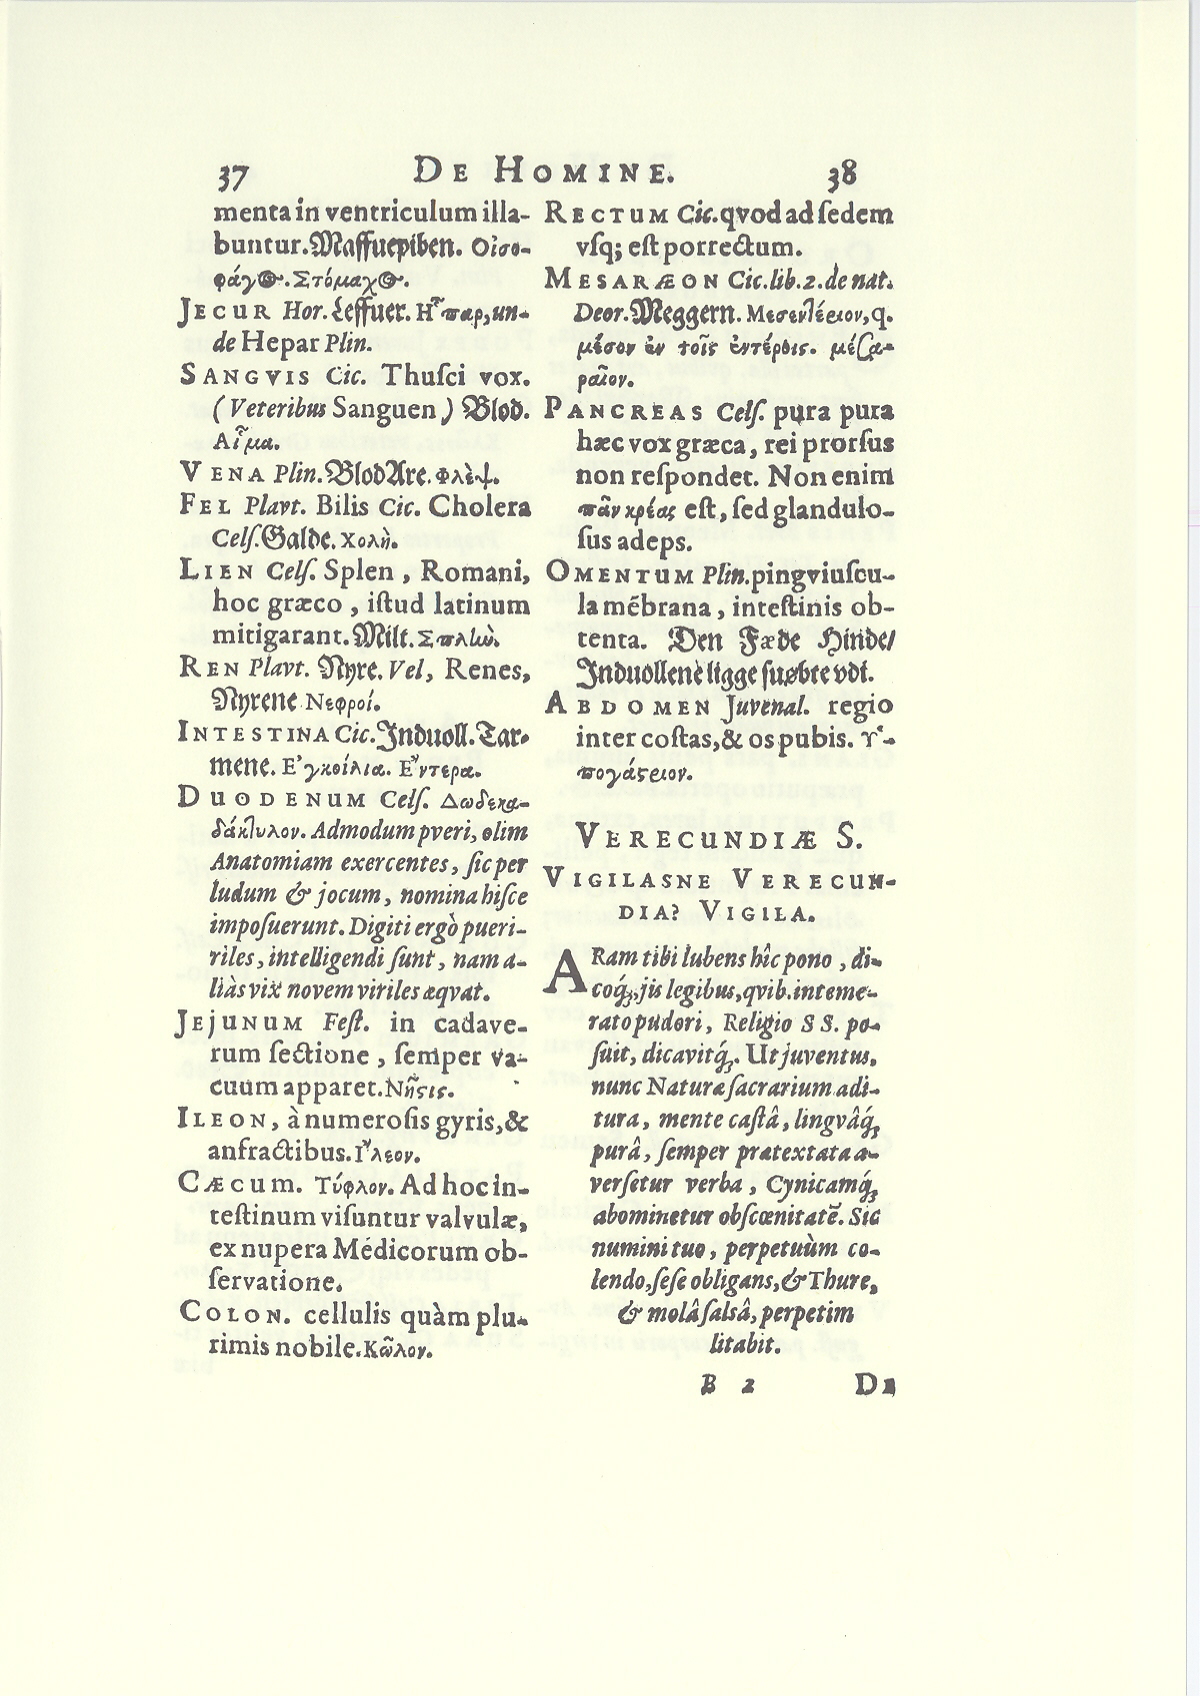 37 DE HOMINE. 38
menta in ventriculum illa-
buntur. Maffuepiben. Οἰσο-
φάγος. Στόμαχος.
JECUR Hor. Leffuer. Η῏παρ, un-
de Hepar Plin.
SANGVIS Cic. Thuſci vox.
(Veteribus Sanguen) Blod.
Αἷμα.
VENA Plin. BlodAre. Φλὲψ.
FEL Plavt. Bilis Cic. Cholera
Celſ. Galde. χολὴ.
LIEN Celſ. Splen, Romani,
hoc græco, iſtud latinum
mitigarant. Milt. Σπλὼ.
REN Plavt. Nyre. Vel, Renes,
Nyrene Νεφροί.
INTESTINA Cic. Induoll. Tar-
mene. Ε᾿γκοίλια. Ε῎ντερα.
DUODENUM Celſ. Δωδεκα-
δάκτυλον. Admodum pveri, olim
Anatomiam exercentes, ſic per
ludum & jocum, nomina hiſce
impoſuerunt. Digiti ergò pueri-
riles, intelligendi ſunt, nam a-
liàs vix novem viriles æqvat.
JEJUNUM Feſt. in cadave-
rum ſectione, ſemper va-
cuum apparet. Νῆϛις.
ILEON, à numeroſis gyris, &
anfractibus. Ι῎λεον.
CÆCUM. Τύφλον. Ad hoc in-
teſtinum viſuntur valvulæ,
ex nupera Médicorum ob-
ſervatione.
COLON. cellulis quàm plu-
rimis nobile. Κῶλον.
RECTUM Cic. qvod ad ſedem
vſq; eſt porrectum.
MESARÆON Cic. lib. 2. de nat.
Deor. Meggern. Μεσεντέριον, q.
μέσον ἐν τοῖς ἐντέροις. μέζα-
ραῖον.
PANCREAS Celſ. pura pura
hæc vox græca, rei prorſus
non reſpondet. Non enim
πᾶν κρέας eſt, ſed glandulo-
ſus adeps.
OMENTUM Plin. pingviuſcu-
la mẽbrana, inteſtinis ob-
tenta. Den Fæde Hinde/
Induollene ligge ſuøbte vdi.
ABDOMEN Juvenal. regio
inter coſtas, & os pubis. Υ῾-
πογάϛειον.
VERECUNDIÆ S.
VIGILASNE VERECUN-
DIA? VIGILA.
ARam tibi lubens hîc pono, di-
coq́;, jis legibus, qvib. inteme-
rato pudori, Religio SS. po-
ſuit, dicavitq́;. Ut juventus,
nunc Naturæ ſacrarium adi-
tura, mente caſtâ, lingvâq́;
purâ, ſemper prætextata a-
verſetur verba, Cynicamq́;
abominetur obſcœnitatẽ. Sic
numini tuo, perpetuùm co-
lendo, ſeſe obligans, & Thure,
& molâ ſalsâ, perpetim
litabit.
B 2 DE